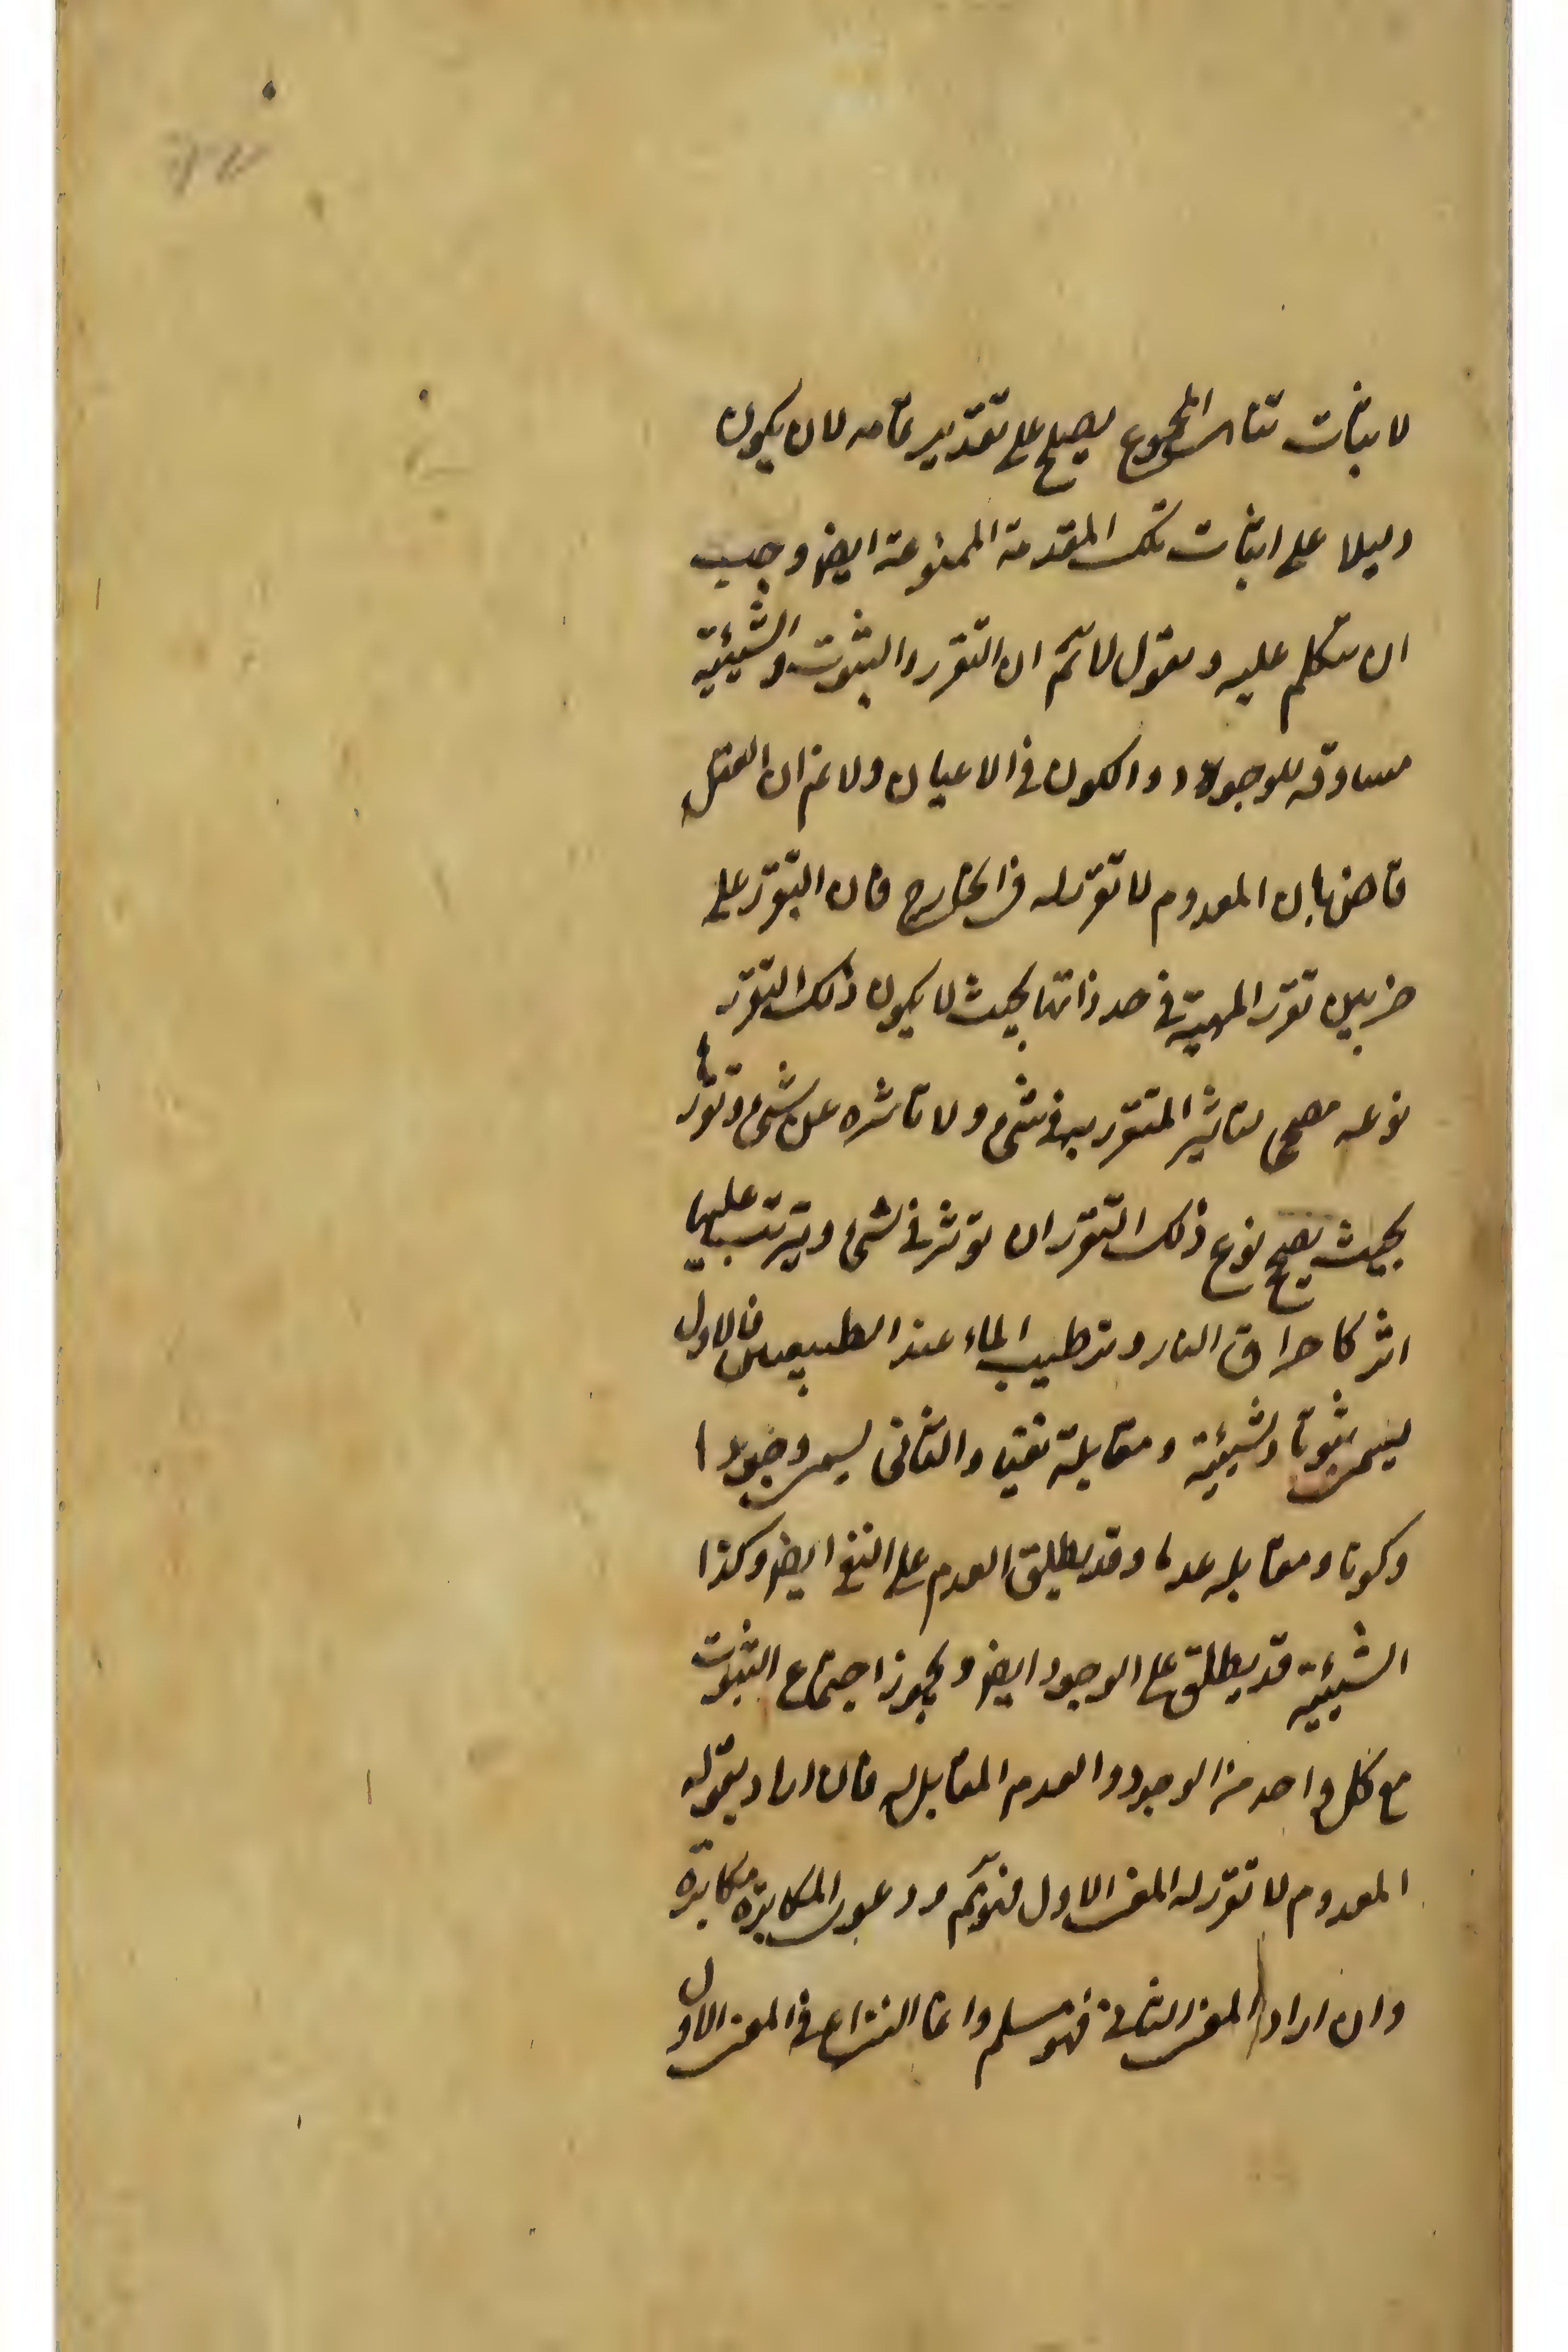 لاثبات تناهى المجموع يصلح على تقدير تمامه لان يكون
دليلا على اثبات تلك المقدمة الممنوعة ايضا وجب
ان يتكلم عليه ويقول لا نم ان التقرر والثبوت والشيئية
مساوقه للوجود والكون فى الاعيان ولا نم ان العقل
قاض بان المعدوم لا تقرر له فى الخارج فان التقرر على
ضربين تقرر المهية فى حد ذاتها بحيث لا يكون ذلك التقرر
نوعه مصححا لتاثير المتقرر به فى شىء ولا تاثره عن شىء وتقررها
بحيث يصح نوع ذلك التقرر ان يؤثر فى شىء ويترتب عليها
اثر كاحراق النار وترطيب الماء عند الطبيعيين فالاول
يسمى ثبوتا وشيئية ومقابلة نفيا والثانى يسمى وجودا
وكونا ومقابله عدما وقد يطلق العدم على النفى ايضا وكذا
الشيئية قد يطلق على الوجود ايضا ويجوز اجتماع الثبوت
مع كل واحد من الوجود والعدم المقابل له فان اراد بقوله
المعدوم لا تقرر له المعنى الاول فهو نم ودعوى المكابرة مكابرة
وان اراد المعنى الثانى فهو مسلم وانما النزاع فى المعنى الاول